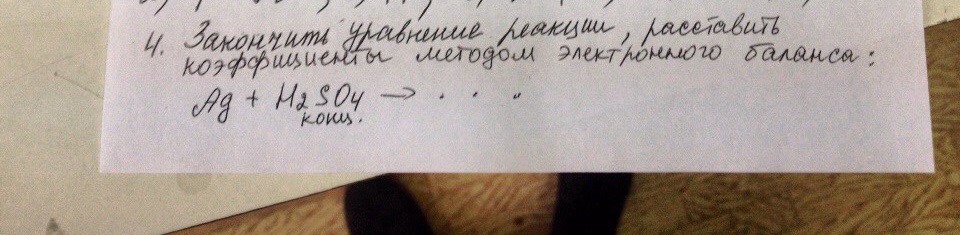 4. Закончить уравнение реакции, расставить
коэффициенты методом электронного баланса:
Ag + H2SO4 → . . .
конц.